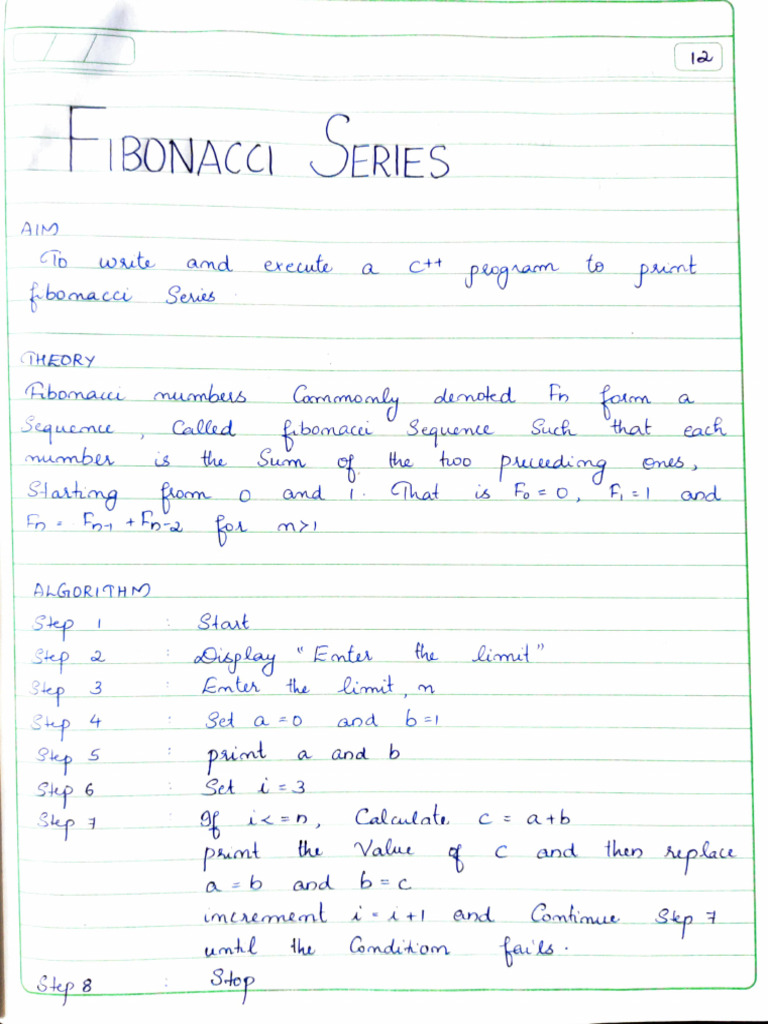 12
FIBONACCI SERIES
AIM
To write and execute a C++ program to print
fibonacci Series
THEORY
Fibonacci numbers Commonly denoted Fn form a
Sequence, Called fibonacci Sequence Such that each
number is the Sum of the two preceeding ones,
Starting from 0 and 1. That is F₀ = 0, F₁ = 1 and
Fn = Fn-1 + Fn-2 for n>1
ALGORITHM
Step 1 : Start
Step 2 : Display "Enter the limit"
Step 3 : Enter the limit, n
Step 4 : Set a = 0 and b = 1
Step 5 : print a and b
Step 6 : Set i = 3
Step 7 : If i <= n, Calculate c = a+b
print the Value of c and then replace
a = b and b = c
increment i = i+1 and Continue Step 7
until the Condition fails.
Step 8 : Stop